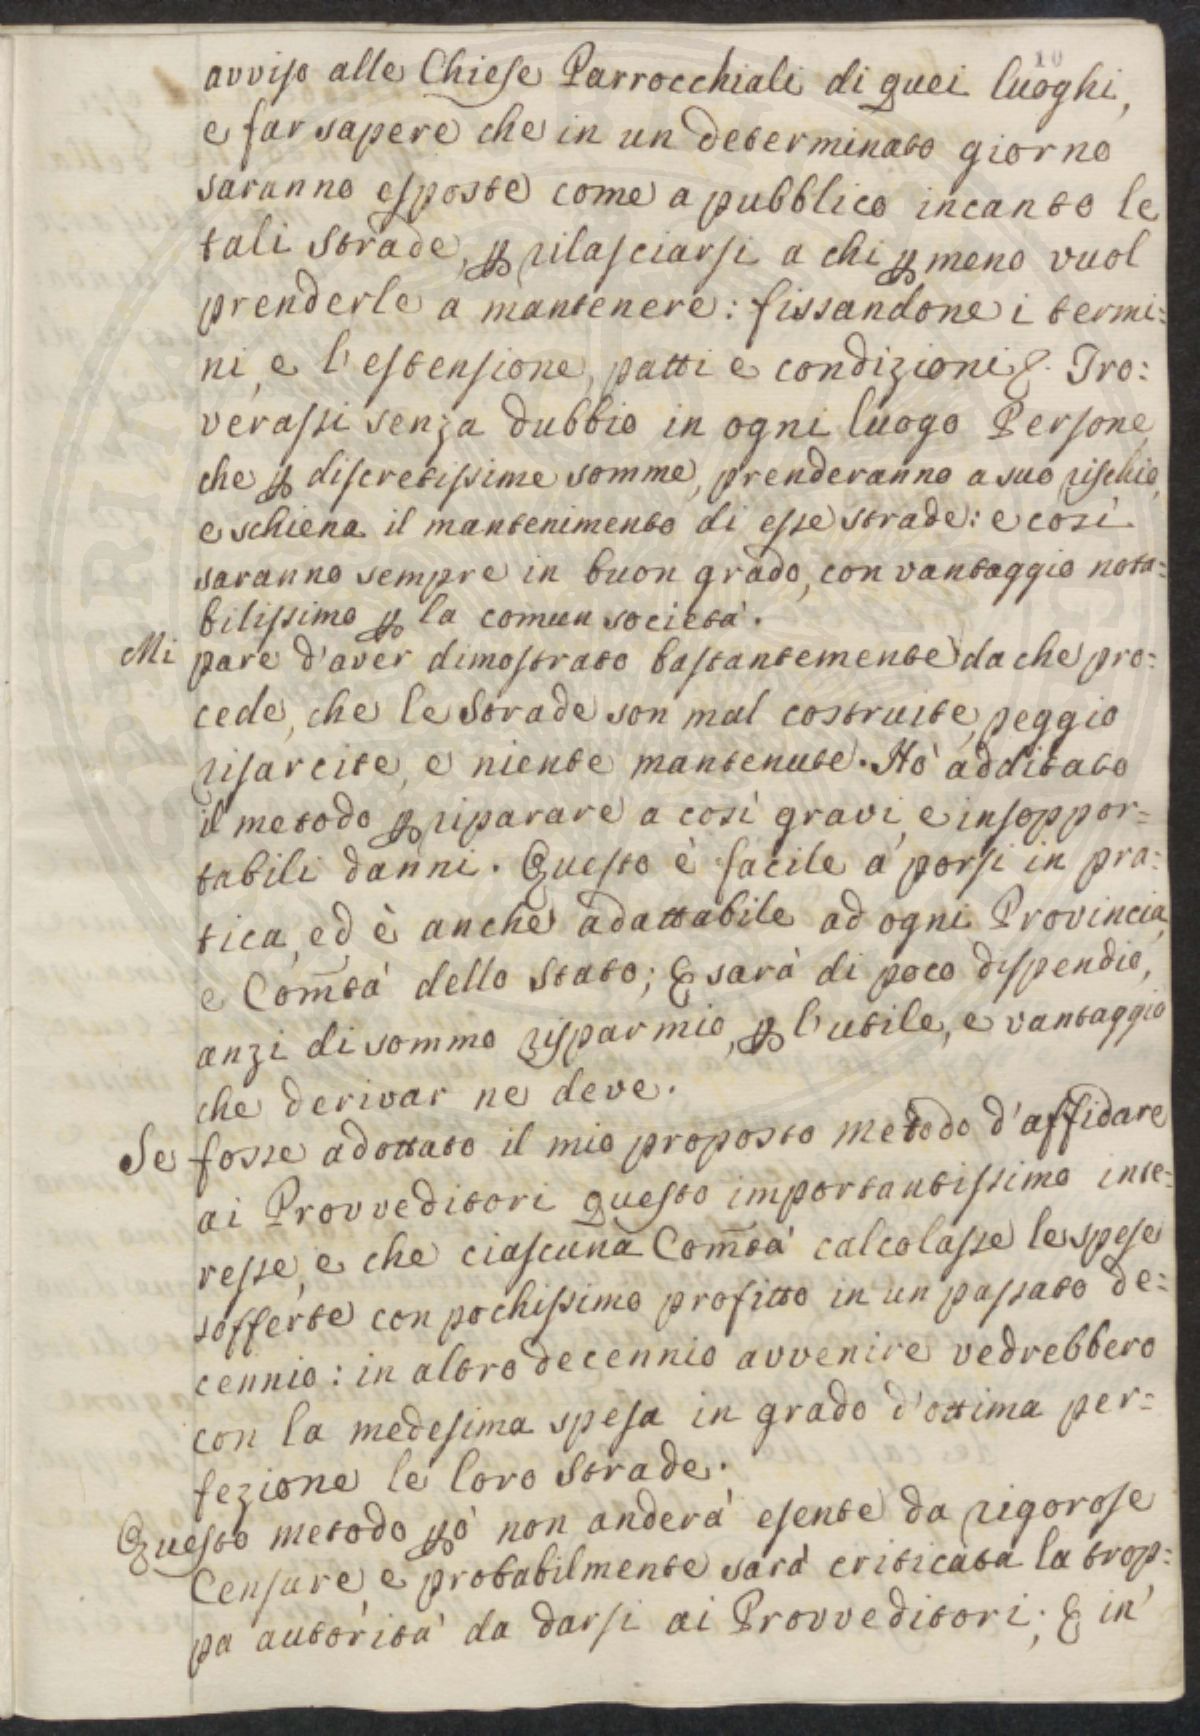 10
avviso alle Chiese Parrocchiali di quei luoghi,
e far sapere che in un determinato giorno
saranno esposte come a pubblico incanto le
tali strade, p rilasciarsi a chi p meno vuol
prenderle a mantenere: fissandone i termi=
ni, e l'estensione, patti e condizioni &. Tro:
verassi senza dubbio in ogni luogo Persone
che p discretissime somme, prenderanno a suo rischio,
e schiena il mantenimento di esse strade: e così
saranno sempre in buon grado, con vantaggio nota=
bilissimo p la comun società.
Mi pare d'aver dimostrato bastantemente da che pro=
cede, che le Strade son mal costruite, peggio
risarcite, e niente mantenute. Hò additato
il metodo p riparare a così gravi, e insoppor=
tabili danni. Questo è facile a porsi in pra=
tica, ed è anche adattabile ad ogni Provincia,
e Com̅tà dello Stato; E sarà di poco dispendio,
anzi di sommo risparmio, p l'utile, e vantaggio
che derivar ne deve.
Se fosse adottato il mio proposto metodo d'affidare
ai Provveditori questo importantissimo inte=
resse, e che ciascuna Com̅tà calcolasse le spese
sofferte con pochissimo profitto in un passato de=
cennio: in altro decennio avvenire vedrebbero
con la medesima spesa in grado d'ottima per=
fezione le loro Strade.
Questo metodo pò non anderà esente da rigorose
Censure, e probabilmente sarà criticata la trop=
pa autorità da darsi ai Provveditori; E in